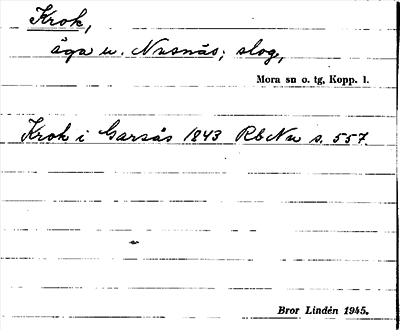 Krok,
äga u. Nusnäs; slog,
Mora sn o. tg, Kopp. l.
Krok i Garsås 1843 RbNu s. 557.
Bror Lindén 1945.